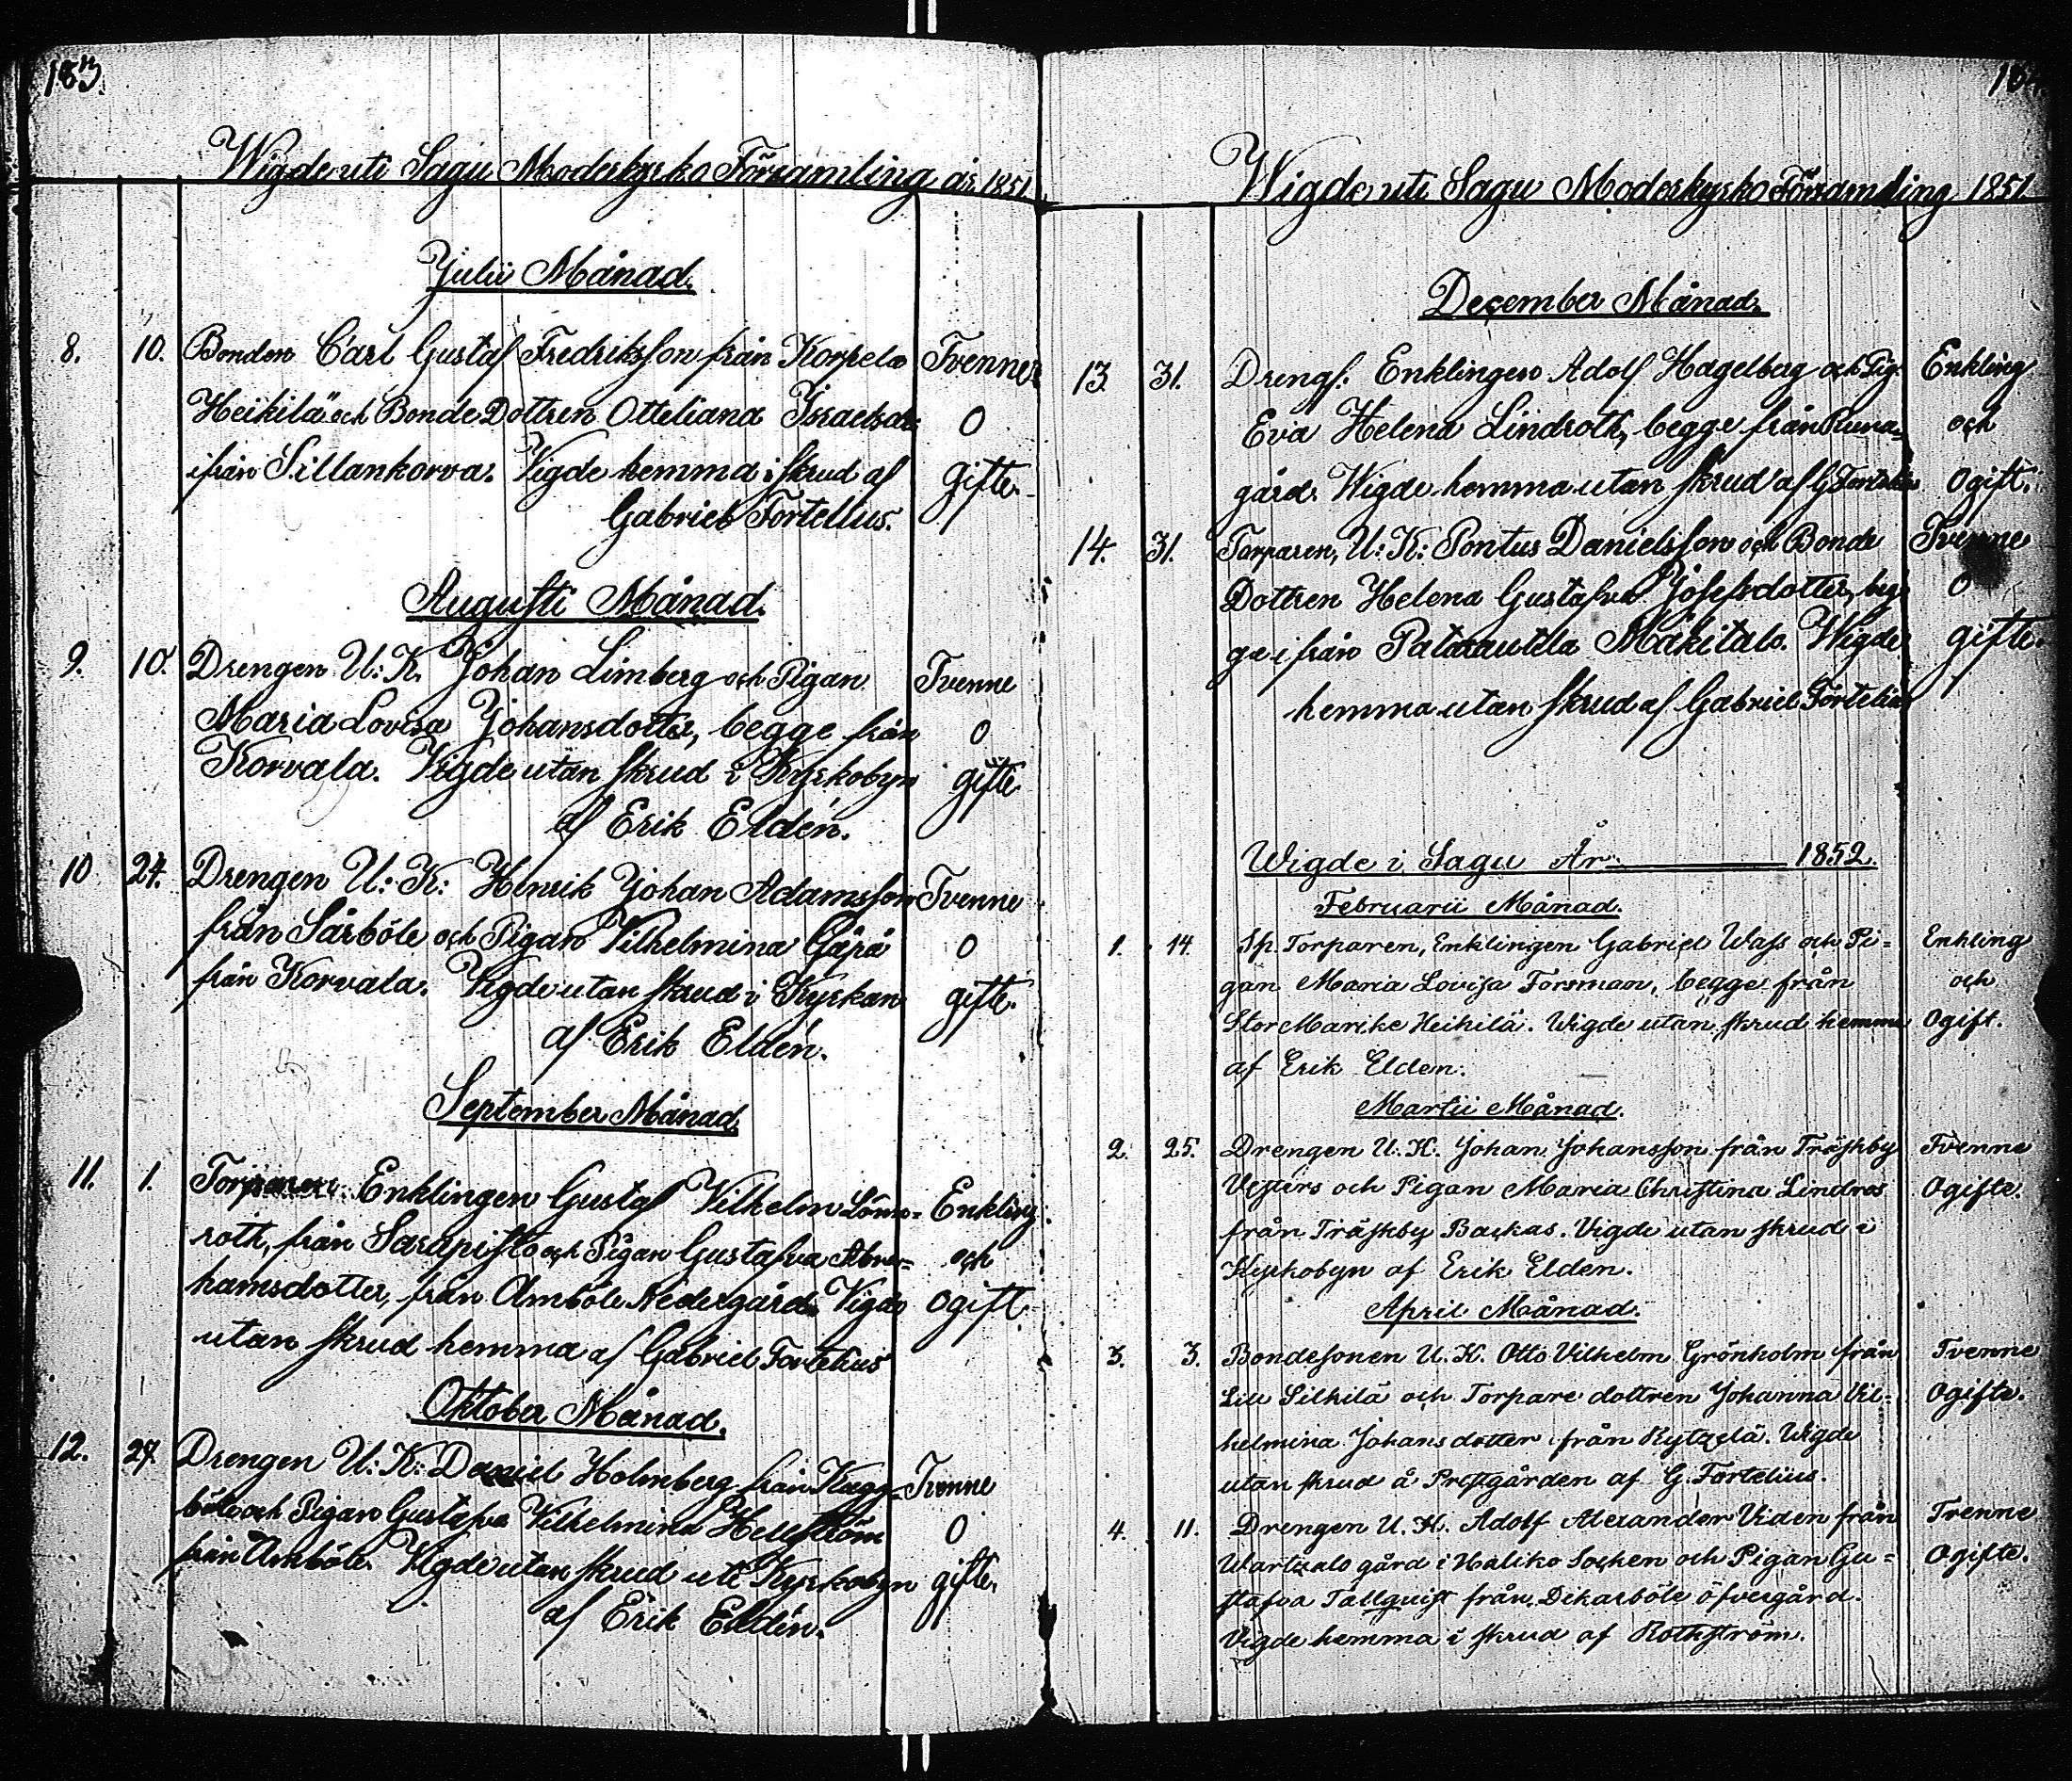 183.
Wigde uti Sagu Moderkyrko Församling år 1851
Julii Månad.
8. 10. Bonden Carl Gustaf Fredriksson från Korpela Tvenne
Heikilä och Bonde Dottren Otteliana Israelsdr O
ifrån Sillankorva. Vigde hemma i skrud af gifte.
Gabriel Fortelius.
Augusti Månad.
9. 10. Drengen U: K. Johan Limberg och Pigan Tvenne
Maria Lovisa Johansdotter, begge från O
Korvala. Vigde utan skrud i Kyrkobyn gifte
af Erik Eldén.
10 24. Drengen U: K: Henrik Johan Adamsson Tvenne
från Sårböle och Pigan Vilhelmina Gäpä O
från Korvala. Vigde utan skrud i Kyrkan gifte.
af Erik Eldén.
September Månad
11. 1. Torparen Enklingen Gustaf Vilhelm Lönn- Enkling
roth, från Sarapisto och Pigan Gustafva Abra- och
hamsdotter, från Amböle Nedergård. Vigde Ogift
utan skrud hemma af Gabriel Fortelius
Oktober Månad.
12. 27. Drengen U: K: Daniel Holmberg från Kagg- Tvenne
böle och Pigan Gustafva Vilhelmina Hellström O
från Amböle. Vigde utan skrud uti Kyrkobyn gifte.
af Erik Eldén.
184
Wigde uti Sagu Moderkyrko Församling 1851.
December Månad.
13. 31. Drengs: Enklingen Adolf Hagelberg och Pig: Enkling
Eva Helena Lindroth, begge från Runa- och
gård. Wigde hemma utan skrud af G Fortelius Ogift.
14. 31. Torparen, U: K: Pontus Danielsson och Bonde Tvenne
Dottren Helena Gustafva Josefsdotter, beg- O
ge ifrån Patarautila Mäkitalo. Wigde gifte.
hemma utan skrud af Gabriel Fortelius
Wigde i Sagu År 1852.
Februarii Månad.
1. 14. Sp. Torparen, Enklingen Gabriel Wass och Pi- Enkling
gan Maria Lovisa Forsman, begge från och
Stor Marike Heikilä. Wigde utan skrud hemma Ogift.
af Erik Elden.
Martii Månad.
2. 25. Drengen U. K. Johan Johansson från Träskby Tvenne
Vesters och Pigan Maria Christina Lindros Ogifte.
från Träskby Backas. Vigde utan skrud i
Kyrkobyn af Erik Elden.
April Månad.
3. 3. Bondesonen U. K. Otto Vilhelm Grönholm från Tvenne
Lill Silkilä och Torpare dottren Johanna Vil- Ogifte.
helmina Johansdotter från Rytzelä. Wigde
utan skrud å Prestgården af G. Fortelius.
4. 11. Drengen U. K. Adolf Alexander Viden från Tvenne
Wartsalo gård i Haliko Socken och Pigan Gu- Ogifte.
stafva Tallquist från Dikarböle öfvergård.
Vigde hemma i skrud af Rothström.